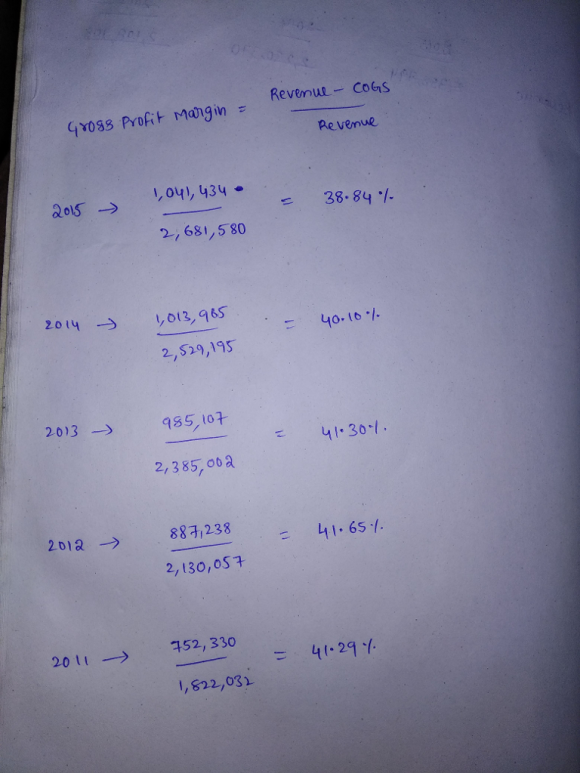 Gross Profit Margin = Revenue - COGS
Revenue
2015 → 1,041,434 = 38.84 %
2,681,580
2014 → 1,013,985 = 40.10 %
2,529,195
2013 → 985,107 = 41.30 %.
2,385,002
2012 → 887,238 = 41.65 %
2,130,057
2011 → 752,330 = 41.29 %
1,822,032